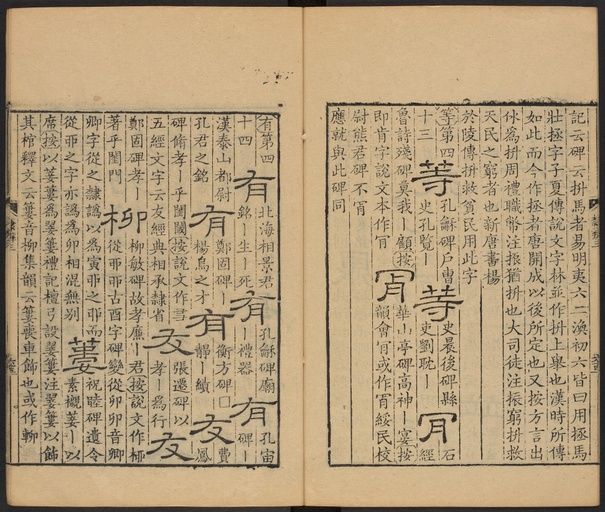 記云碑云拼馬者易明夷六二渙初六皆曰用拯馬
壯拯字子夏傳說文字林並作拼上舉也漢時所傳
如此而今作拯者唐開成以後所定也又按方言出
休為拼周禮職幣注振猶拼也大司徒注振窮拼救
天民之窮者也新唐書楊
於陵傳拼救貧民用此字
等第四
十三
等孔龢碑戶曹
史孔覽｜
等史晨後碑縣
吏劉耽｜
冃石經
魯詩殘碑莫我｜顧按
即肯字說文本作冃
冃華山亭碑高神｜宴按
韻會冃或作肎綏民校
尉熊君碑不肎
應就與此碑同
有第四
十四
有北海相景君
銘｜生｜死
有孔龢碑廟
｜禮器
有孔宙
碑｜
漢泰山都尉
孔君之銘
有鄭固碑｜
楊烏之才
有衡方碑□
靜｜續
友費鳳
碑脩孝｜乎閨閫按說文作㕛
五經文字云友經典相承隸省
友張遷碑以
孝｜為行
友
鄭固碑孝
著乎閨門
柳柳敏碑故孝廉｜君按說文作桺
從丣丣古酉字碑變從卯卯音卿
卿字從之隸譌以為寅丣之丣而
從丣之字亦譌為卯相混無別
蔞祝睦碑遺令
素櫬蔞｜以
席按以蔞蔞為翣蔞禮記檀弓設翣蔞注翣蔞以飾
其棺釋文云蔞音柳集韻云蔞喪車飾也或作輀